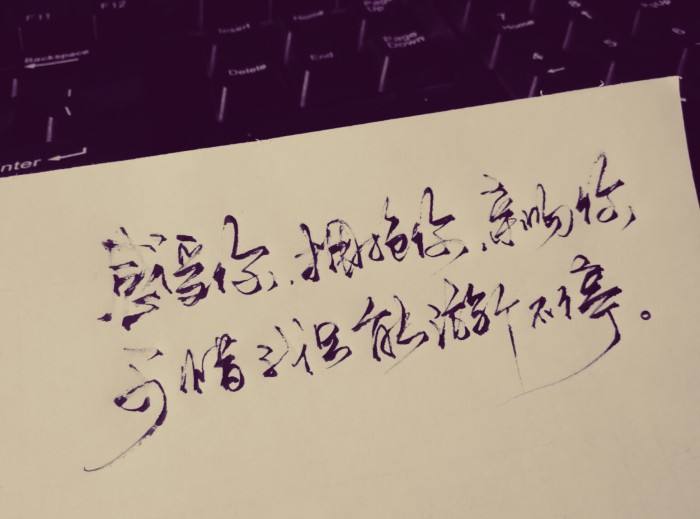 F11 F12 Insert Home Page Up
Backspace Delete End Page Down 7 Home
Enter
感受你,拥抱你,亲吻你,
可惜我只能游行不停。